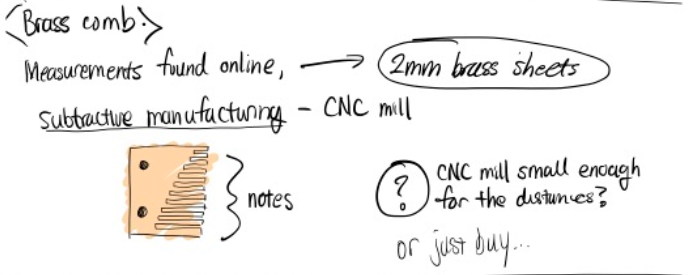 <Brass comb:>
Measurements found online, → 2mm brass sheets
subtractive manufacturing – CNC mill
notes
? CNC mill small enough
for the distances?
or just buy...